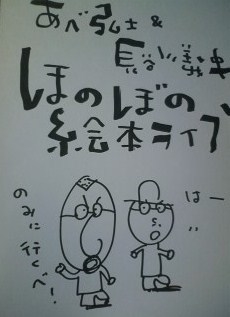 あべ弘士&
長谷川義史
ほのぼの
絵本ライブ
はーい
のみに行くべ!